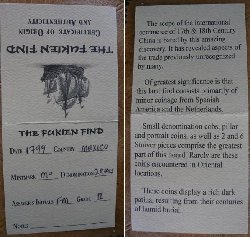 CERTIFICATE OF ORIGIN
AND AUTHENTICITY
THE FUKIEN FIND
THE FUKIEN FIND
DATE 1799 COUNTRY MEXICO
MINTMARK Mo DENOMINATION 2 Reales
ASSAYERS INITIALS FM GRADE 12
NOTES
The scope of the international
commerce of 17th & 18th Century
China is noted by this amazing
discovery. It has revealed aspects of
the trade previously unrecognized
by many.
Of greatest significance is that
this later find consists primarily of
minor coinage from Spanish
America and the Netherlands.
Small denomination cobs, pillar
and portrait coins, as well as 2 and 6
Stuiver pieces comprise the greatest
part of this hoard. Rarely are these
coins encountered in Oriental
locations.
These coins display a rich dark
patina, resulting from their centuries
of humid burial.